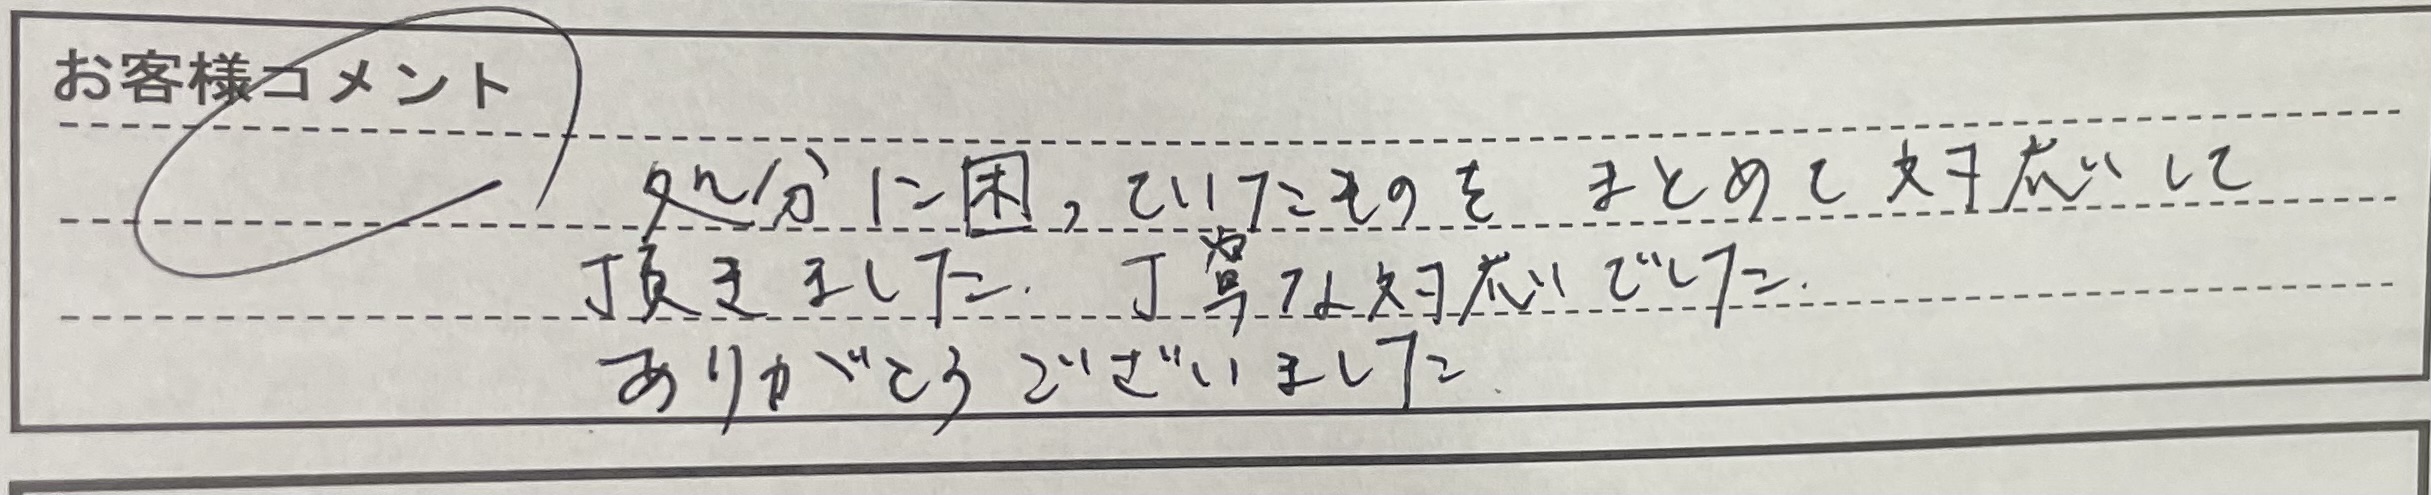 お客様コメント
処分に困っていたものを まとめて対応して
頂きました. 丁寧な対応でした.
ありがとうございました.